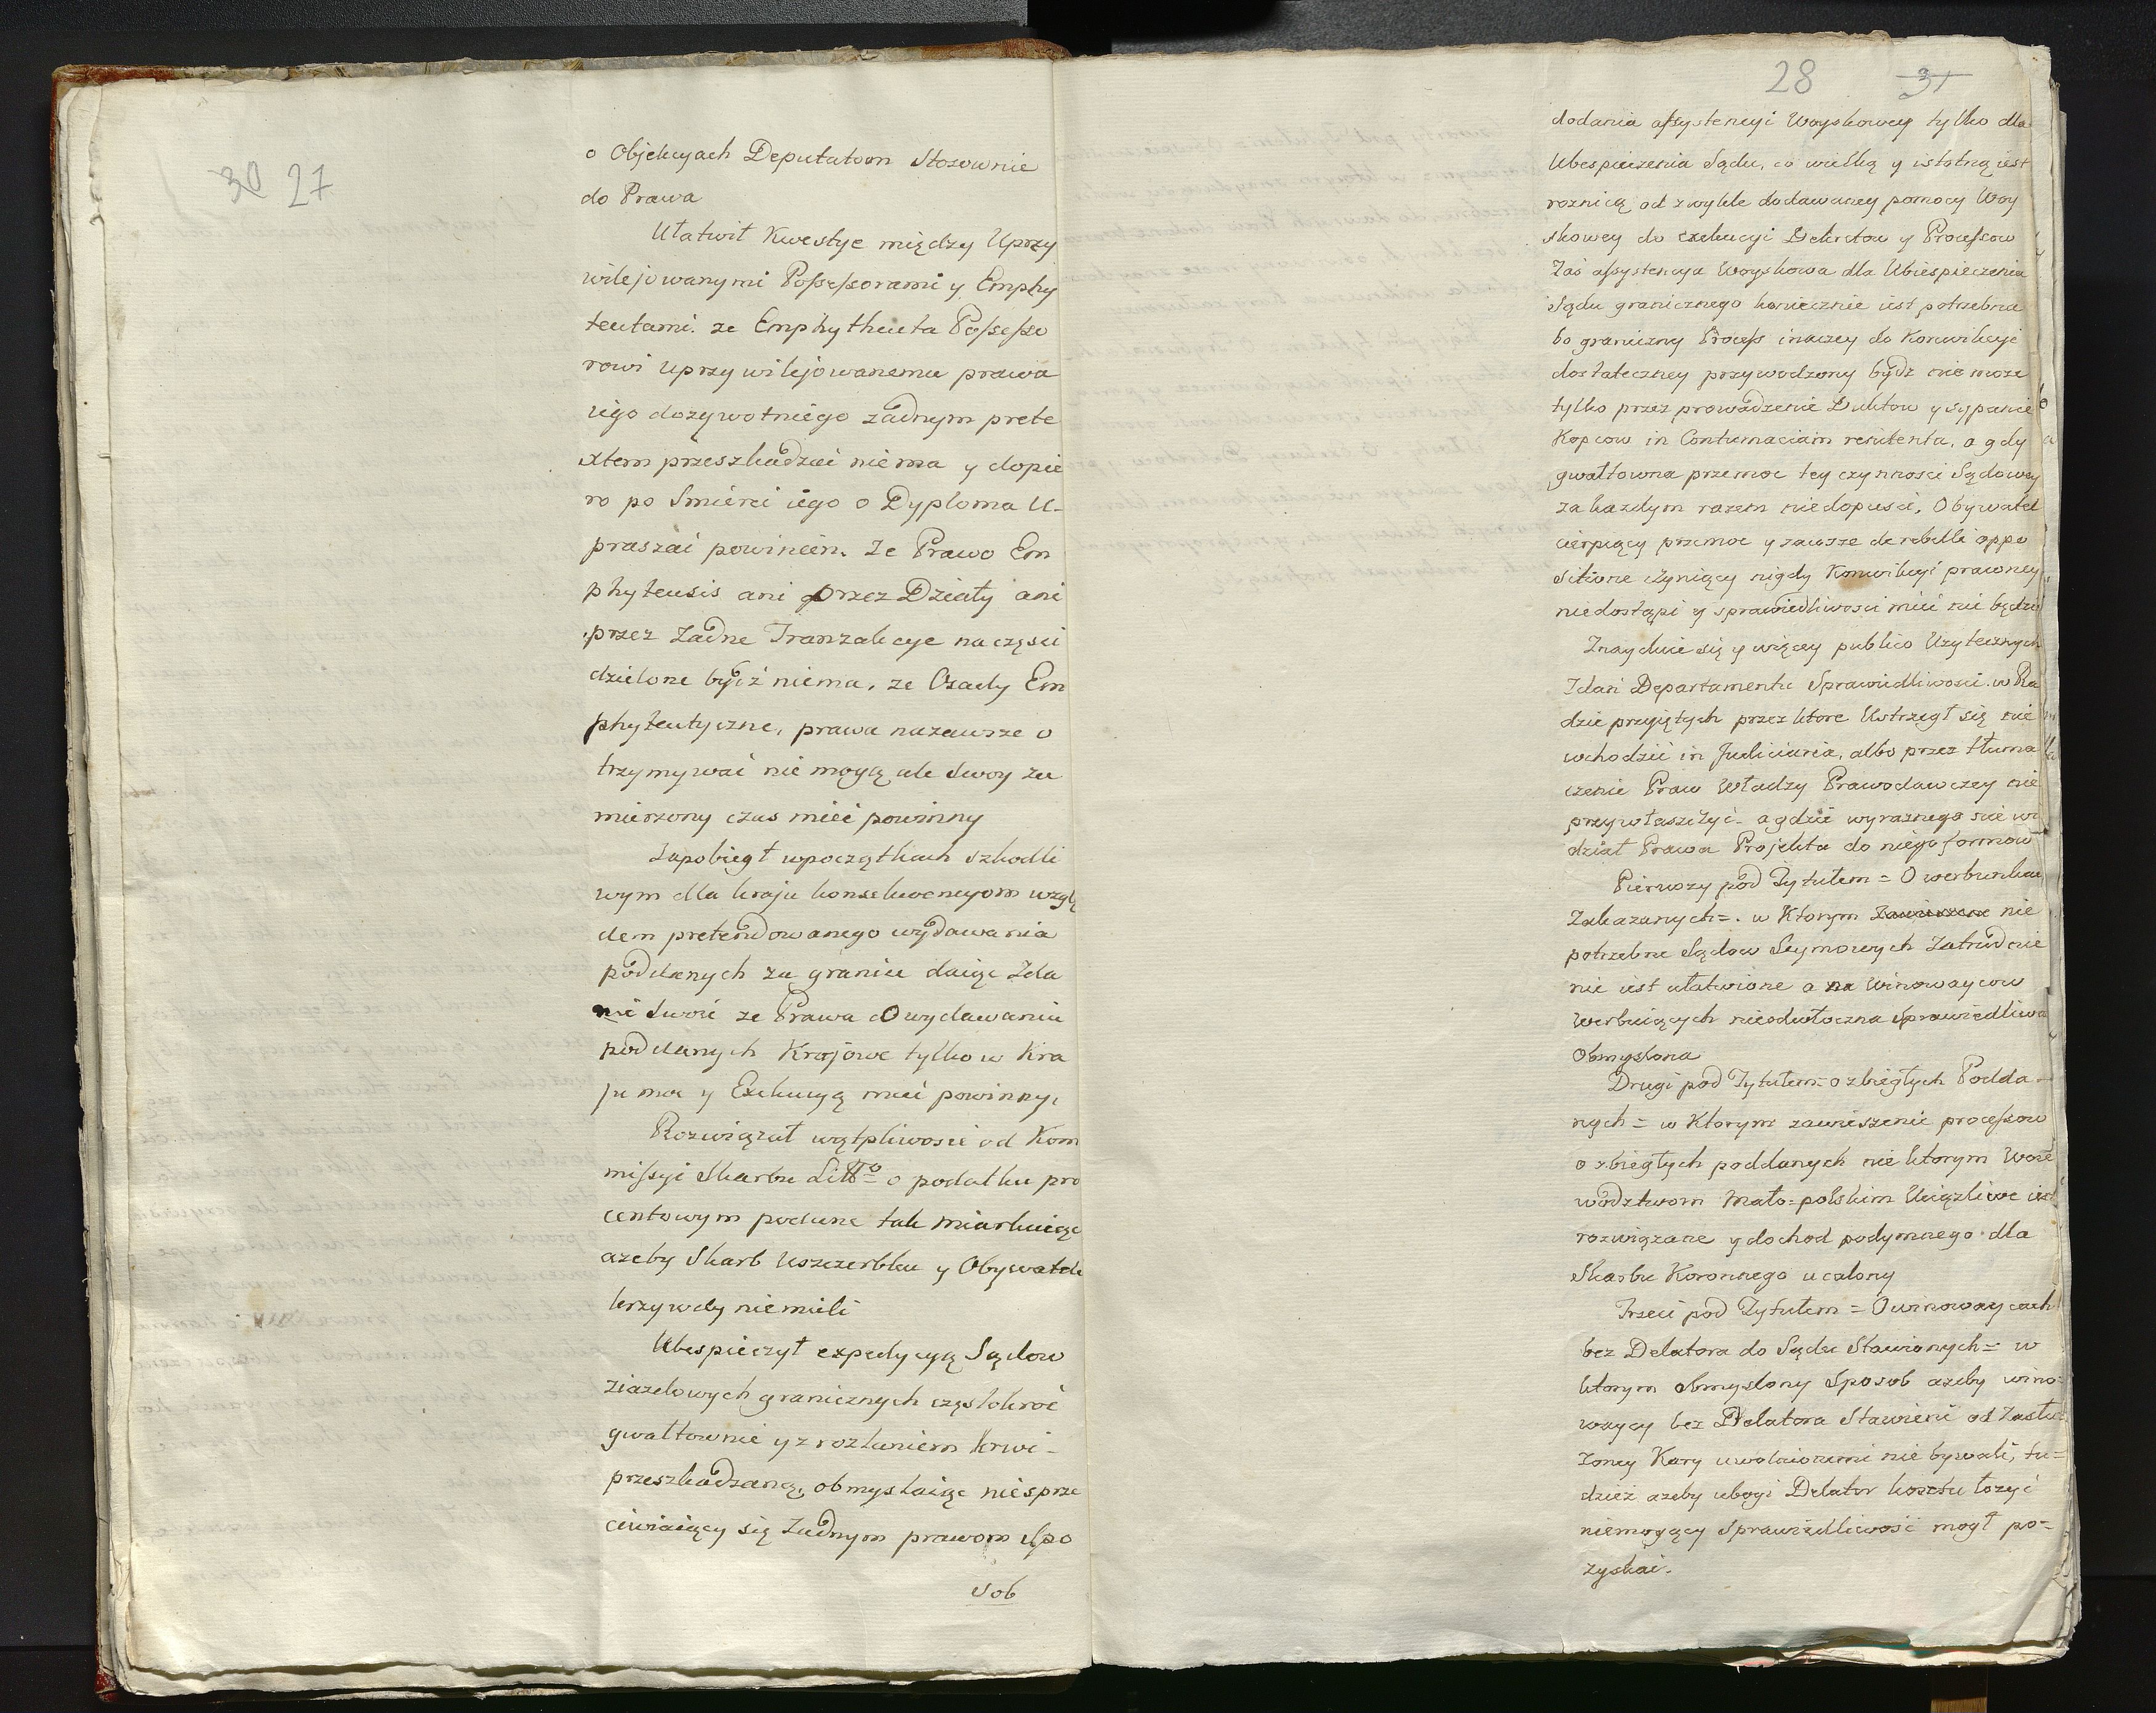 30 27
o Objekcyach Deputatom Stosownie
do Prawa
Ułatwił Kwestye między Uprzy
wilejowanymi Possessorami y Emphy
teutami. ze Emphytheuta Possesso
rowi uprzywilejowanemu prawa
iego dozywotniego żadnym prete
xtem przeszkadzać niema y dopie
ro po Smierci iego o Dyploma U-
praszać powinien. Ze Prawo Em
phyteusis ani przez Działy ani
przez Żadne Tranzakcye na części
dzielone bydź niema, ze Osady Em
phyteutyczne, prawa nazawsze o
trzymywać nie mogą ale Swoy za
mierzony czas mieć powinny
Zapobiegł wpoczątkach szkodli
wym dla kraju konsekwencyom wzglę
dem pretendowanego wydawania
poddanych za granice daiąc Zda
nie Swoie ze Prawa O wydawaniu
poddanych Krajowe tylko w Kra
ju moc y Exekucyą mieć powinny,
Rozwiązał wątpliwość od Kom
missyi Skarbu Litto o podatku pro
centowym podane tak miarkuiąc
azeby Skarb Uszczerbku y Obywatele
krzywdy niemieli
Ubespieczył expedycyą Sądow
ziazdowych granicznych częstokroć
gwałtownie y z rozlaniem krwi-
przeszkadzaną, obmyslaiąc niesprze
ciwiaiący się Żadnym prawom Spo
sob
28 31
dodania assystencyi Woyskowey tylko dla
Ubespieczenia Sądu, co wielką y istotną iest
roznicą od zwykle dodawaney pomocy Woy
skowey do exekucyi Dekretow y Processow
Zaś assystencya Woyskowa dla Ubiespieczenia
Sądu granicznego koniecznie iest potrzebna
bo graniczny Process inaczey do Konwikcyi
dostateczney przywodzony bydz nie moze
tylko przez prowadzenie Duktow y sypanie
Kopcow in Contumaciam renitenta, a gdy
gwałtowna przemoc tey czynnosci Sądowey
za kazdym razem niedopuści, Obywatel
cierpiący przemoc y zawsze de rebelli oppo
sitione czyniący nigdy Konwikcyi prawney
niedostąpi y sprawiedliwosci mieć nie będzie
Znayduie się y więcey publico Uzytecznych
Zdań Departamentu Sprawiedliwosci w Ra
dzie przyiętych przez ktore Ustrzegł się nie
wchodzić in Judiciaria, albo przez tłuma
czenie Praw Władzy Prawodawczey nie
przywłaszczyć- a gdzie wyraznego nie wi
dział Prawa Projekta do niego formow
Pierwszy pod Tytułem = O werbunkach
Zakazanych =. w Ktorym Zawieszone nie
potrzebne Sądow Seymowych Zatrudnie
nie iest ułatwione a na Winowaycow
Werbuiących nieodwłoczna Sprawiedliwość
Obmyslona
Drugi pod Tytułem = o zbiegłych Podda-
nych = w Ktorym zawieszenie processow
o zbiegłych poddanych niektorym Woie
wodztwom Mało-polskim Uciązliwe iest
rozwiązane y dochod podymnego dla
Skarbu Koronnego ucalony
Trzeci pod Tytułem = O winowaycach
bez Delatora do Sądu Stawionych = w
ktorym obmyslony Sposob azeby wino=
waycy bez Delatora Stawieni od Zasłu=
zoney Kary uwolnionemi nie bywali, tu=
dzież azeby ubogi Delator kosztu łozyć
niemogący Sprawiedliwość mogł po=
zyskać.